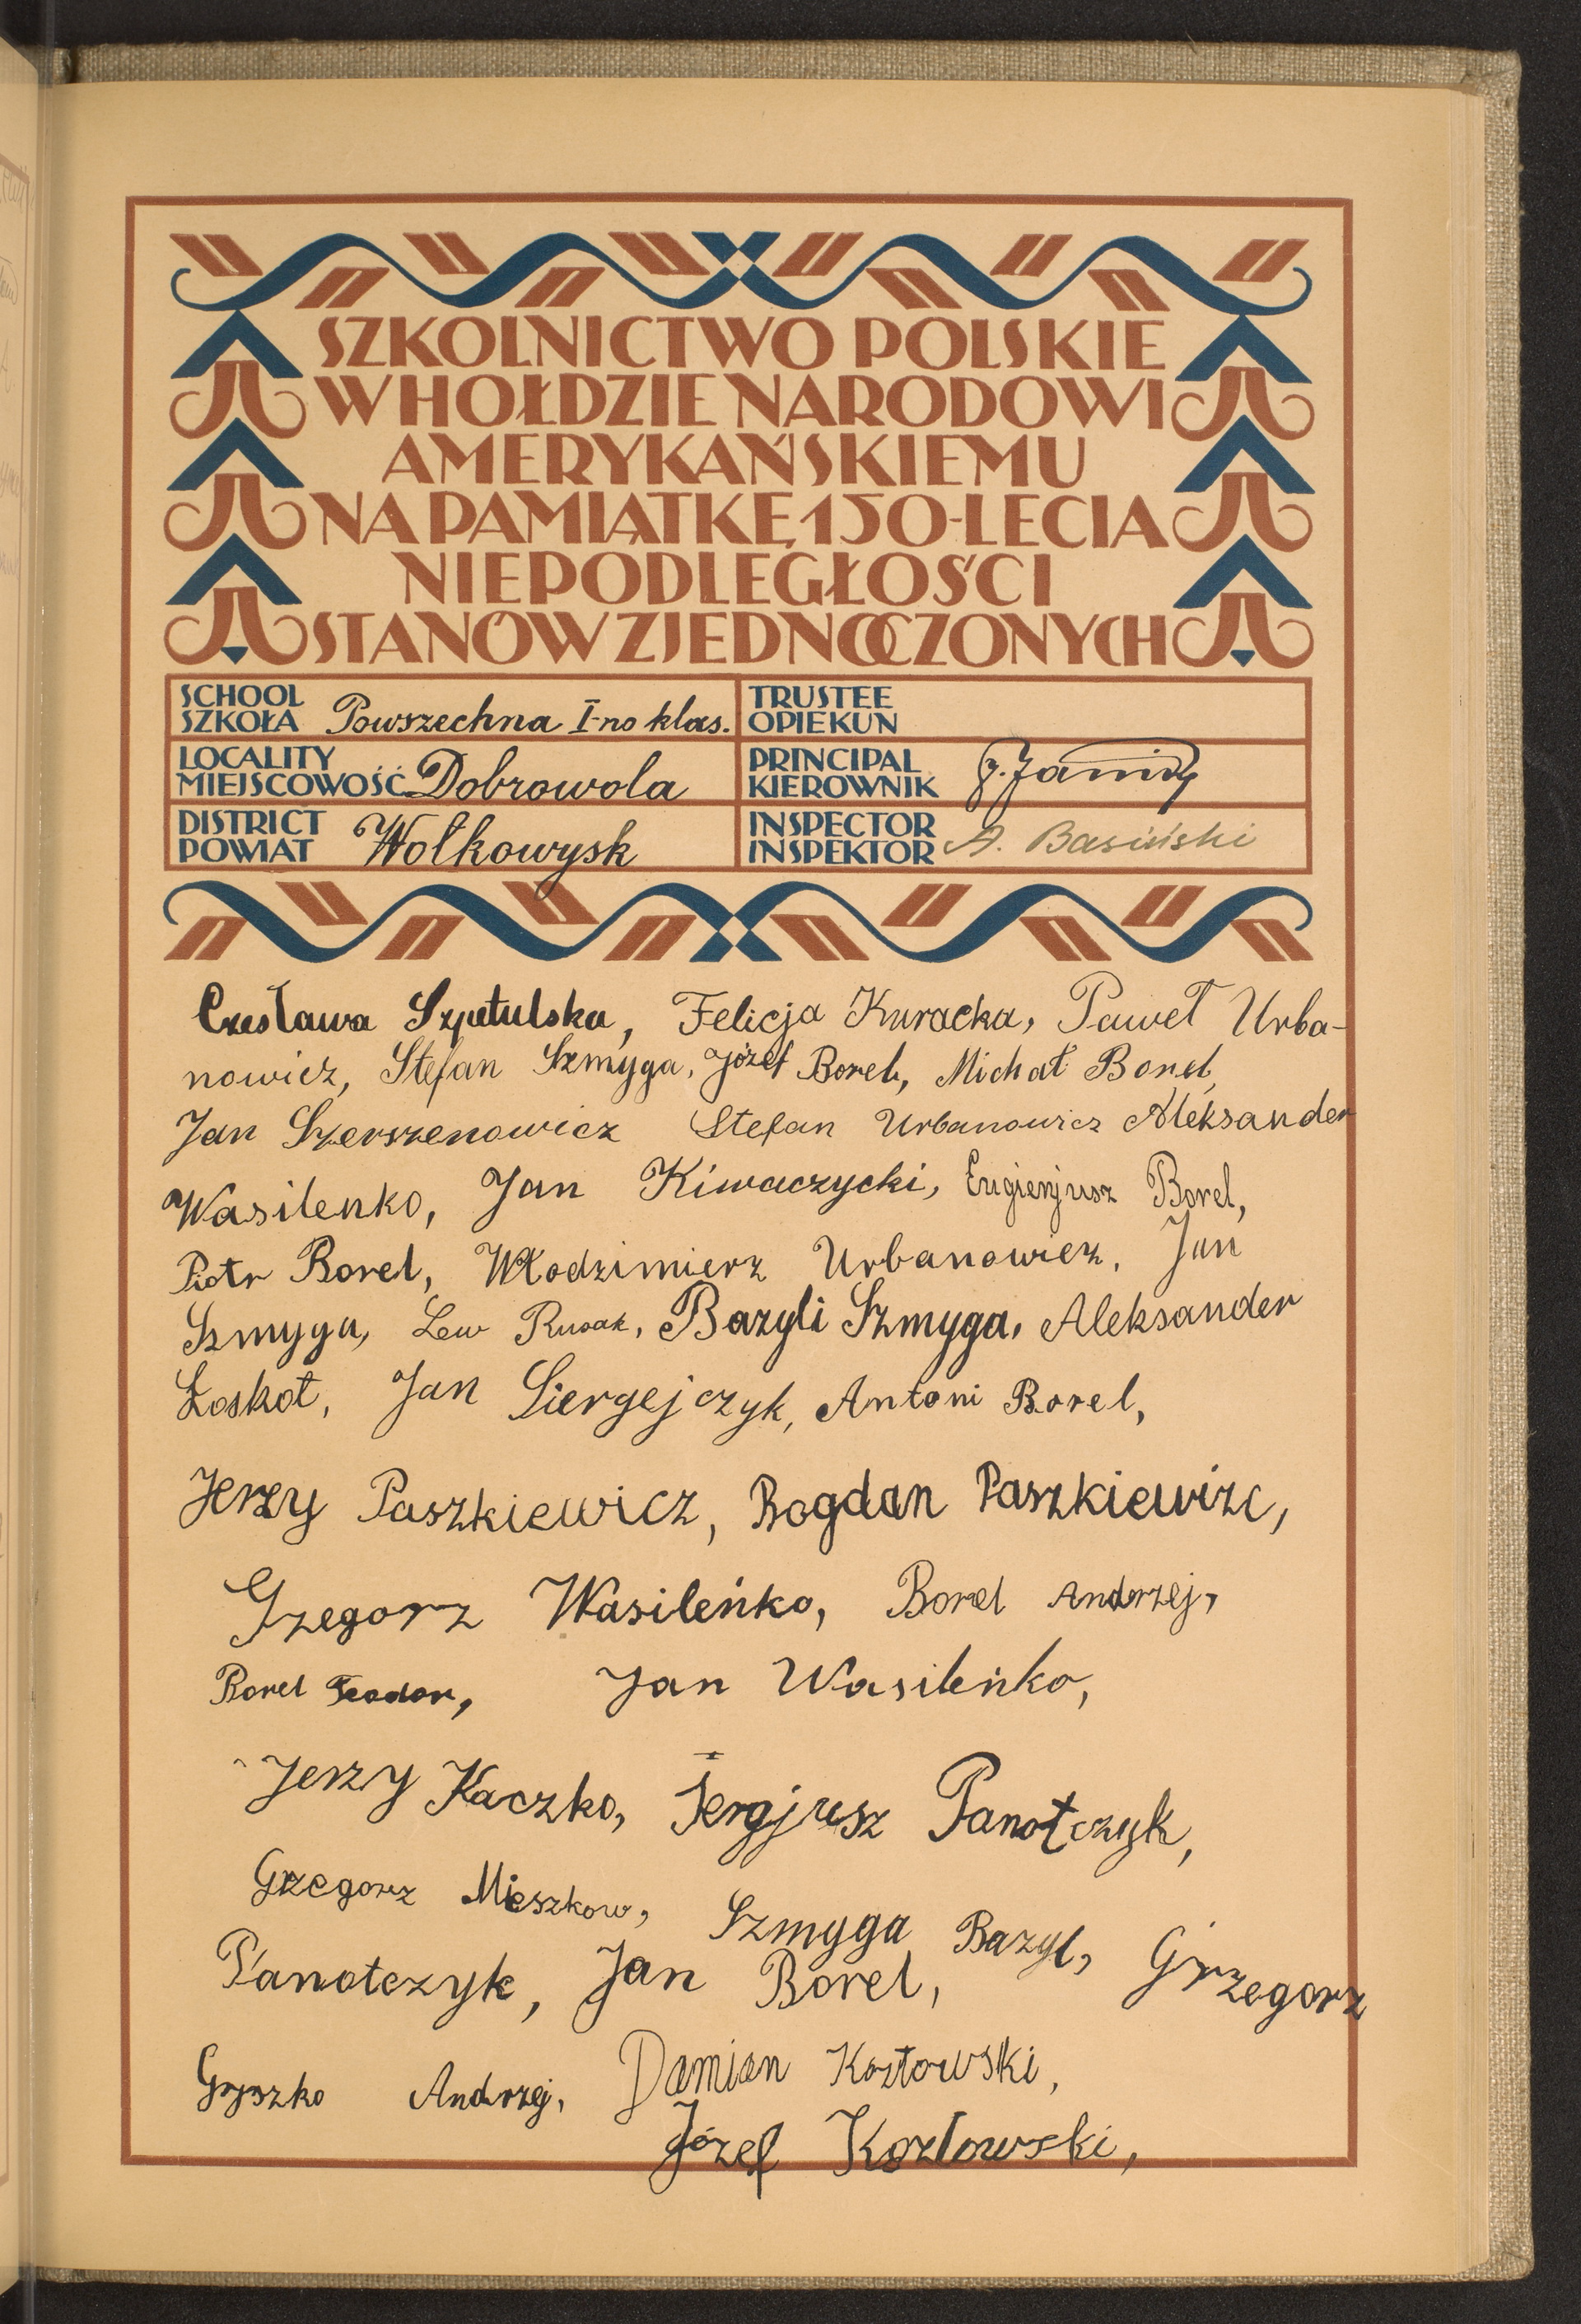 SZKOLNICTWO POLSKIE
W HOŁDZIE NARODOWI
AMERYKAŃSKIEMU
NA PAMIĄTKĘ 150-LECIA
NIEPODLEGŁOŚCI
STANÓW ZJEDNOCZONYCH
SCHOOL
SZKOŁA Powszechna I-no klas.
TRUSTEE
OPIEKUN
LOCALITY
MIEJSCOWOŚĆ Dobrowola
PRINCIPAL
KIEROWNIK
DISTRICT
POWIAT Wołkowysk
INSPECTOR
INSPEKTOR A. Basiński
Czesława Szpetulska, Felicja Kuracka, Paweł Urba-
nowicz, Stefan Szmyga, Józef Borel, Michał Borel,
Jan Szerszenowicz Stefan Urbanowicz Aleksander
Wasilenko, Jan Kiwaczycki, Eugienjusz Borel,
Piotr Borel, Włodzimierz Urbanowicz, Jan
Szmyga, Lew Rusak, Bazyli Szmyga, Aleksander
Łoskot, Jan Siergejczyk, Antoni Borel,
Jerzy Paszkiewicz, Bogdan Paszkiewizc,
Gzegorz Wasileńko, Borel Andrzej,
Borel Teodor, Jan Wasileńko,
Jerzy Kaczko, Sergjusz Panotczyk,
Grzegorz Mieszkow, Szmyga Bazyl, Grzegorz
Panotczyk, Jan Borel,
Gryszko Andrzej, Damian Kozłowski,
Józef Kozłowski,